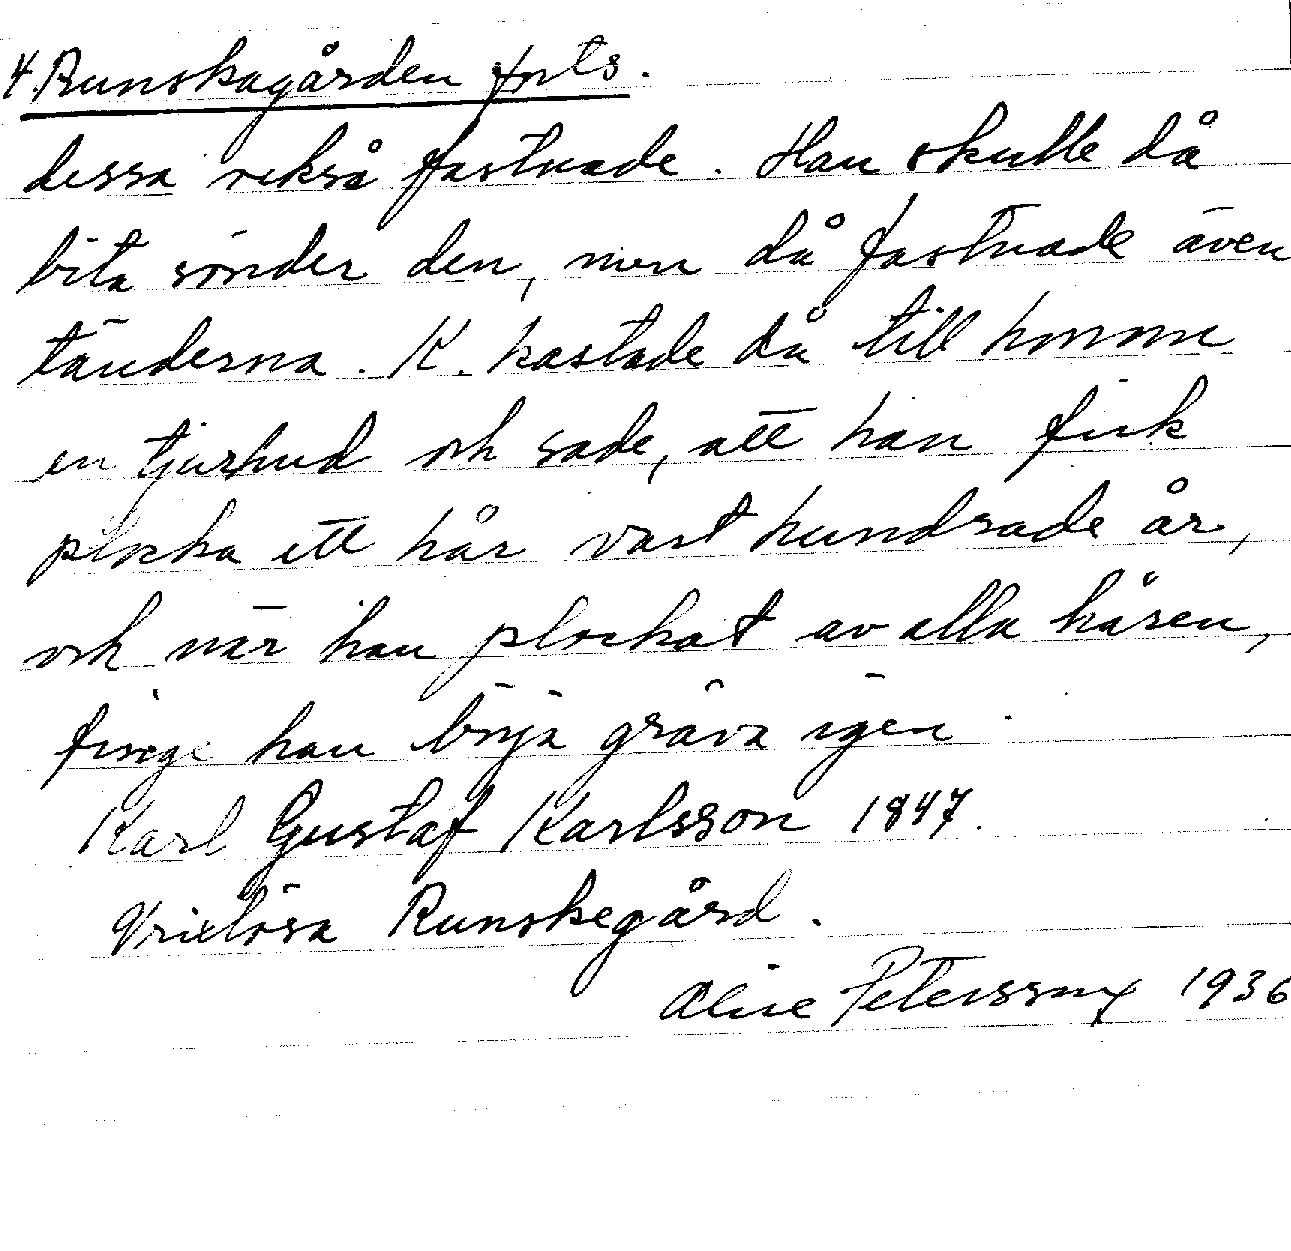 4. Runskagården forts.
dessa också fastnade. Han skulle då
bita sönder den, men då fastnade även
tänderna. K. kastade då till honom
en tjurhud och sade, att han fick
plocka ett hår vart hundrade år,
och när han plockat av alla håren,
finge han börja gräva igen.
Karl Gustaf Karlsson 1847.
Vrixlösa Runskegård.
Alice Petersson 1936